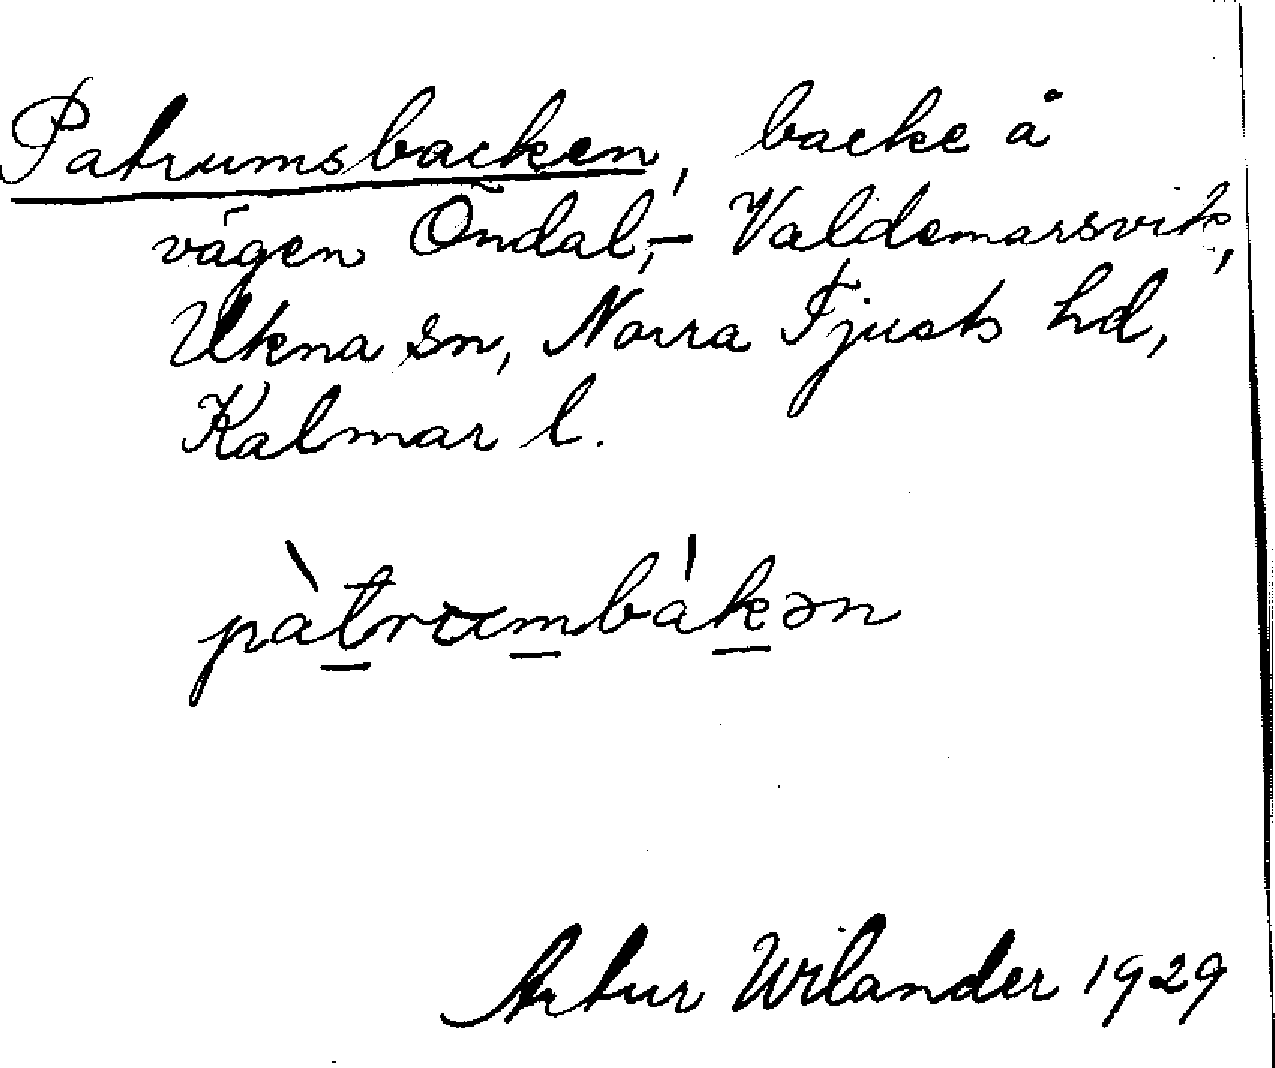 Patrumsbacken, backe å
vägen Öndal,– Valdemarsvik,
Ukna sn, Norra Tjusts hd,
Kalmar l.
pàtrumbákən
Artur Wilander 1929